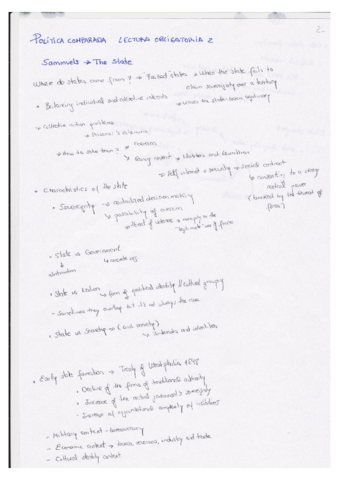 2.
POLÍTICA COMPARADA LECTURA OBLIGATORIA 2
Samuels → The State
Where do states come from? → Failed states → When the state fails to
claim sovereignty over a territory
• Balancing individual and collective interests
→ When the state loses legitimacy
→ Collective action problems
→ Prisoner's dilemma
→ How do states form?
→ coercion
→ Hobbes and Rousseau
→ Self interest → security → Social contract
→ consenting to a
central power
(backed by the threat of
force)
• Characteristics of the state
• Sovereignty → centralized decision making
→ possibility of coercion
→ threat of violence → monopoly on the
"legitimate" use of force
• State vs Government
↓ → concrete
abstraction
• State vs Nation → form of political identity / cultural grouping
- Sometimes they overlap but it's not always the case
• State vs Society → (civil society)
→ interests and identities
• Early state formation → Treaty of Westphalia 1648
• Decline of the forms of traditional authority
• Increase of the central government's sovereignty
• Increase of organizational complexity of
- Military context →
- Economic context → taxes, resources, industry and trade
- Cultural identity context